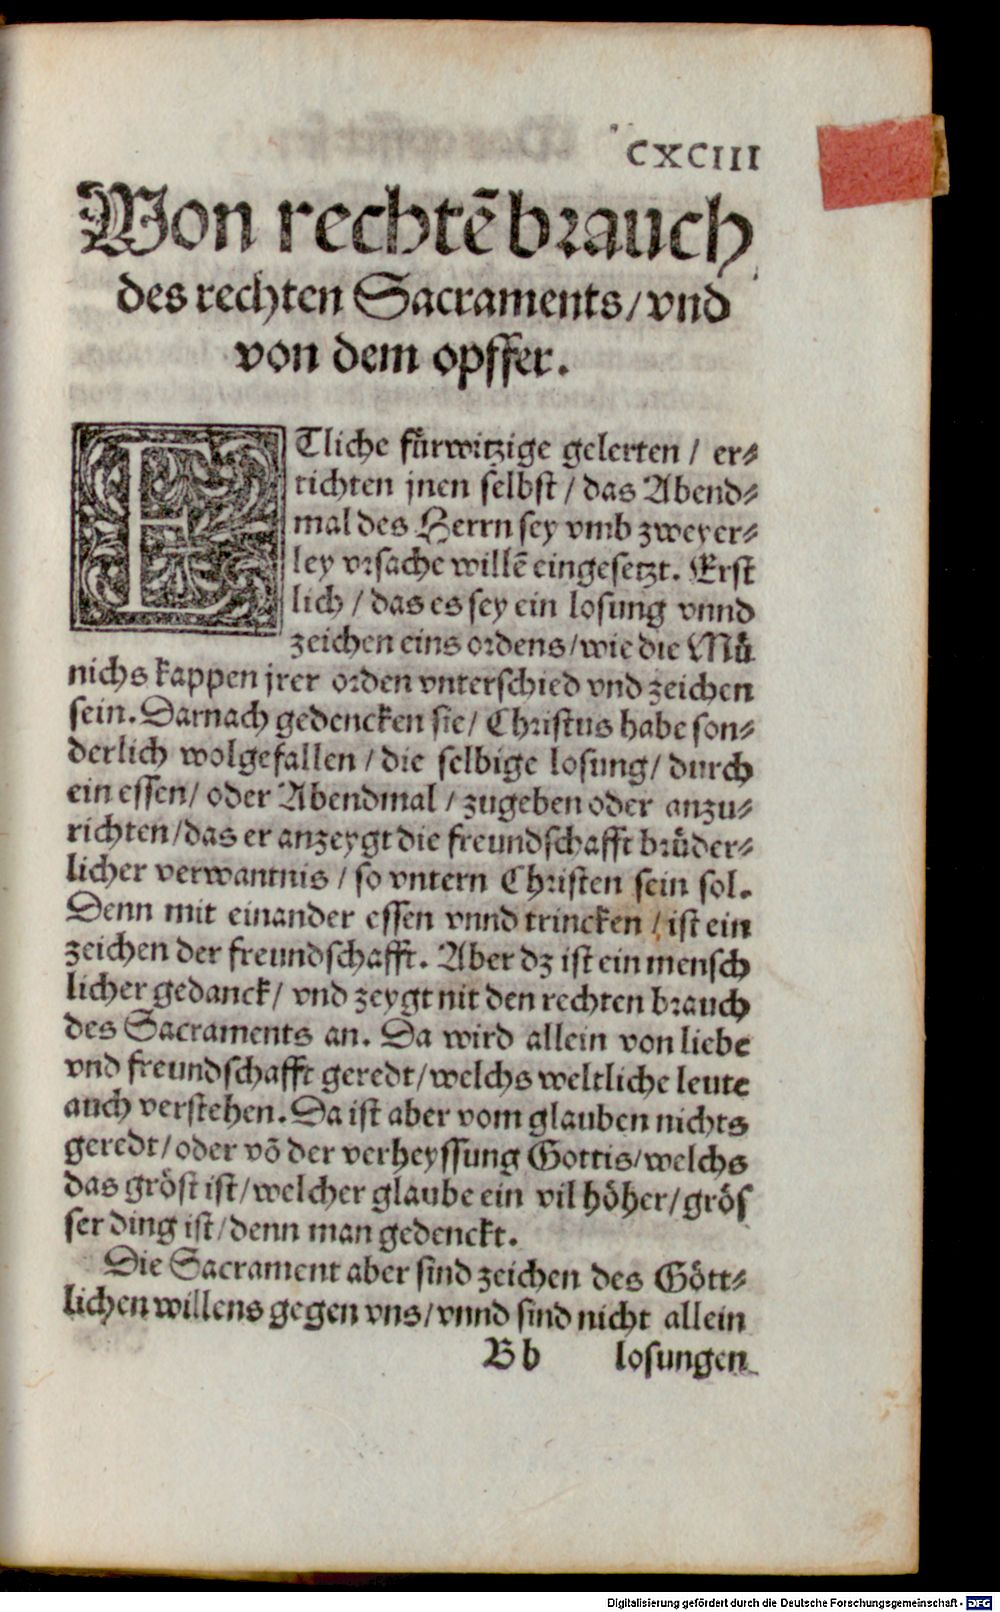 CXCIII
Von rechtē brauch
des rechten Sacraments/ vnd
von dem opffer.
ETliche fürwitzige gelerten / er⸗
tichten jnen selbst / das Abend⸗
mal des Herrn sey vmb zweyer⸗
ley vrsache willē eingesetzt. Erst
lich / das es sey ein losung vnnd
zeichen eins ordens/ wie die Mü
nichs kappen jrer orden vnterschied vnd zeichen
sein. Darnach gedencken sie/ Christus habe son⸗
derlich wolgefallen / die selbige losung/ durch
ein essen/ oder Abendmal / zugeben oder anzu⸗
richten/ das er anzeygt die freundschafft brüder⸗
licher verwantnis / so vntern Christen sein sol.
Denn mit einander essen vnnd trincken / ist ein
zeichen der freundschafft. Aber dz ist ein mensch
licher gedanck/ vnd zeygt nit den rechten brauch
des Sacraments an. Da wird allein von liebe
vnd freundschafft geredt/ welchs weltliche leute
auch verstehen. Da ist aber vom glauben nichts
geredt/ oder vō der verheyssung Gottis/ welchs
das gröst ist/ welcher glaube ein vil höher/ grös
ser ding ist/ denn man gedenckt.
Die Sacrament aber sind zeichen des Gött⸗
lichen willens gegen vns/ vnnd sind nicht allein
Bb losungen
Digitalisierung gefördert durch die Deutsche Forschungsgemeinschaft - DFG